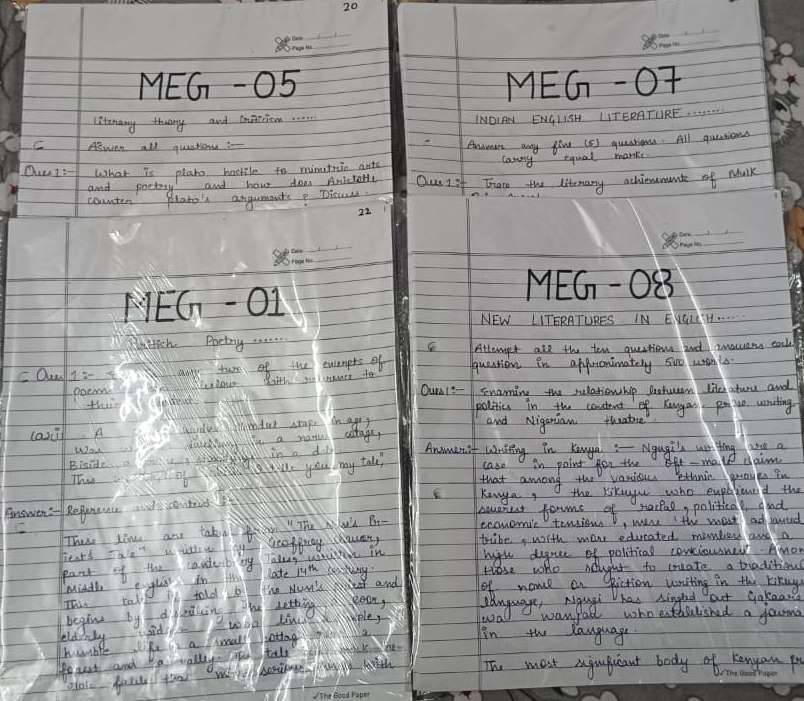 20
Date
Page No.
MEG - 05
Literary theory and Criticism ......
C Aswer all questions :-
Ques 1:- What is plato hostile to mimetric arts
and poetry and how does Aristotle
counter plato's arguments ? Discuss.
Date
Page No.
MEG - 07
INDIAN ENGLISH LITERATURE .......
Answer any five (5) questions. All questions
carry equal marks.
Ques 1:- Trace the literary achievements of Mulk
22
Date
Page No.
MEG - 01
British Poetry ......
C Ques 1:- any two of the excerpts of
poems with reference to
their
(a)(i) A stape in age,
Was in a narwe cotage,
Biside a in a dale
This of you my tale,
Answer:- Reference and context :-
C These lines are taken from "The Nun's Pri-
est's Tale" written by Geoffrey Chaucer,
part of the canterbury Tales written in
Middle english in the late 14th century.
This tale is told by the Nun's Priest and
begins by describing the setting poor,
elderly widow who lives a simple,
humble life in a small cottage a
forest and a valley. The tale
oic
Date
Page No.
MEG - 08
NEW LITERATURES IN ENGLISH .....
C Attempt all the ten questions and answers each
question in approximately 500 words.
Ques 1:- Examine the relationship between literature and
politics in the context of Kenyan prose writing
and Nigerian theatre.
Answer:- Writing in Kenya :- Ngugi's writing are a
case in point for the oft - made claim
that among the various ethnic groups in
C Kenya, the Kikuyu who experienced the
severest forms of racial, political, and
economic tensions, were the most advanced
tribe, with more educated members and a
high degree of political consciousness. Amon
those who sought to create a tradition
of novel or fiction writing in the Kikuyu
language, Ngugi has singled out Gakaara
wa wanjau who established a journa
in the language.
The most significant body of Kenyan pr
The Good Paper
The Good Paper